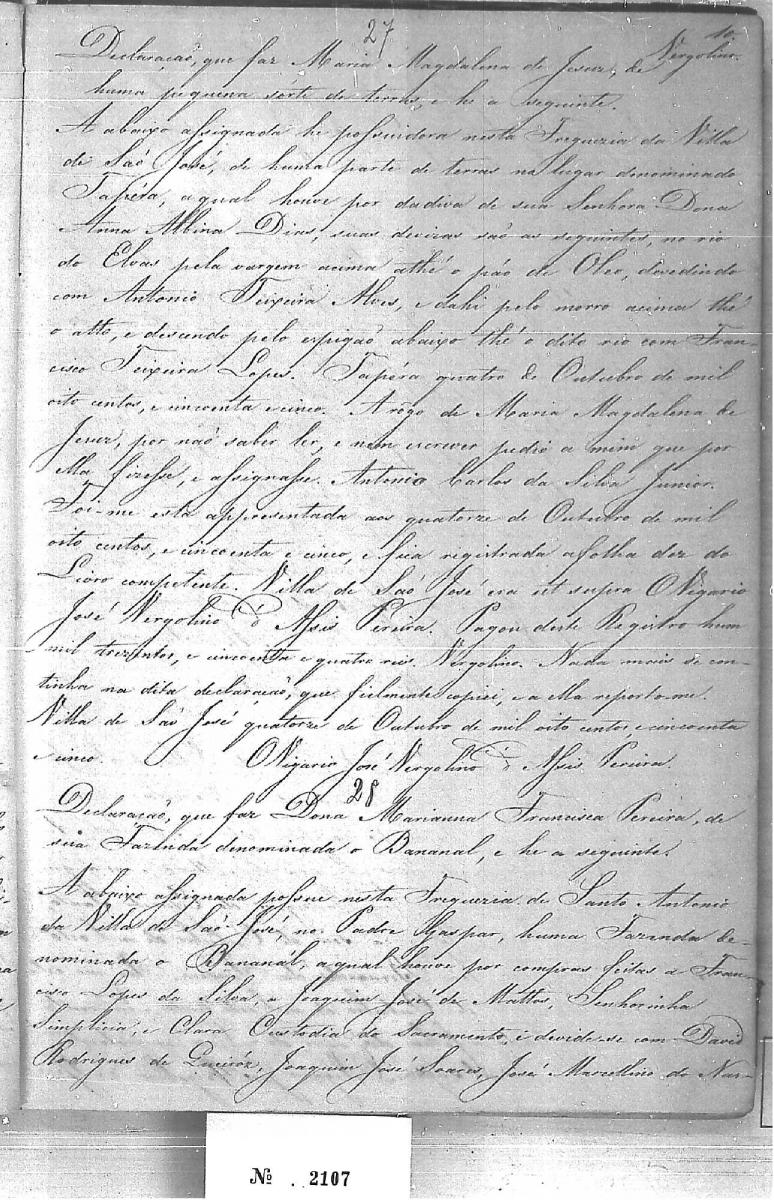 27
10.
Vergolino.
Declaração, que faz Maria Magdalena de Jesuz, de
huma pequena sorte de terras, e he a seguinte.
A abaixo assignada he possuidora nesta Freguezia da Villa
de São José, de huma parte de terras no lugar denominado
Tapéra, a qual houve por dadiva de sua Senhora Dona
Anna Albina Dias, suas devizas são as seguintes, no rio
do Elvas pela vargem acima athé o páo de Oleo, devedindo
com Antonio Teixeira Alves, e dahi pelo morro acima thé
o alto, e descendo pelo espigão abaixo thé o dito rio com Fran-
cisco Teixeira Lopes. Tapéra quatro de Outubro de mil
oito centos, e cincoenta e cinco. A rogo de Maria Magdalena de
Jesuz, por não saber ler, e nem escrever pedio a mim que por
ella fizesse, e assignasse. Antonio Carlos da Silva Junior.
Foi-me esta appresentada aos quatorze de Outubro de mil
oito centos, e cincoenta e cinco, e fica registrada a folha dez do
Livro competente. Villa de São José era ut supra O Vigario
José Vergolino d' Assis Pereira. Pagou deste Registro hum
mil trezentos, e cincoenta e quatro reis. Vergolino. Nada mais se con-
tinha na dita declaração, que fielmente copiei, e a ella reporto-me.
Villa de São José quatorze de Outubro de mil oito centos e cincoenta
e cinco. O Vigario José Vergolino d' Assis Pereira.
28
Declaração, que faz Dona Marianna Francisca Pereira, de
sua Fazenda denominada o Bananal, e he a seguinte.
A abaixo assignada possue nesta Freguezia de Santo Antonio
da Villa de São José, no Padre Gaspar, huma Fazenda de-
nominada o Bananal, a qual houve por compras feitas a Fran-
cisco Lopes da Silva, a Joaquim José de Mattos, Senhorinha
Simplicia, e Clara Custodia do Sacramento, e devide-se com David
Rodrigues de Queiróz, Joaquim José Soares, José Marcellino do Nas-
№ . 2107